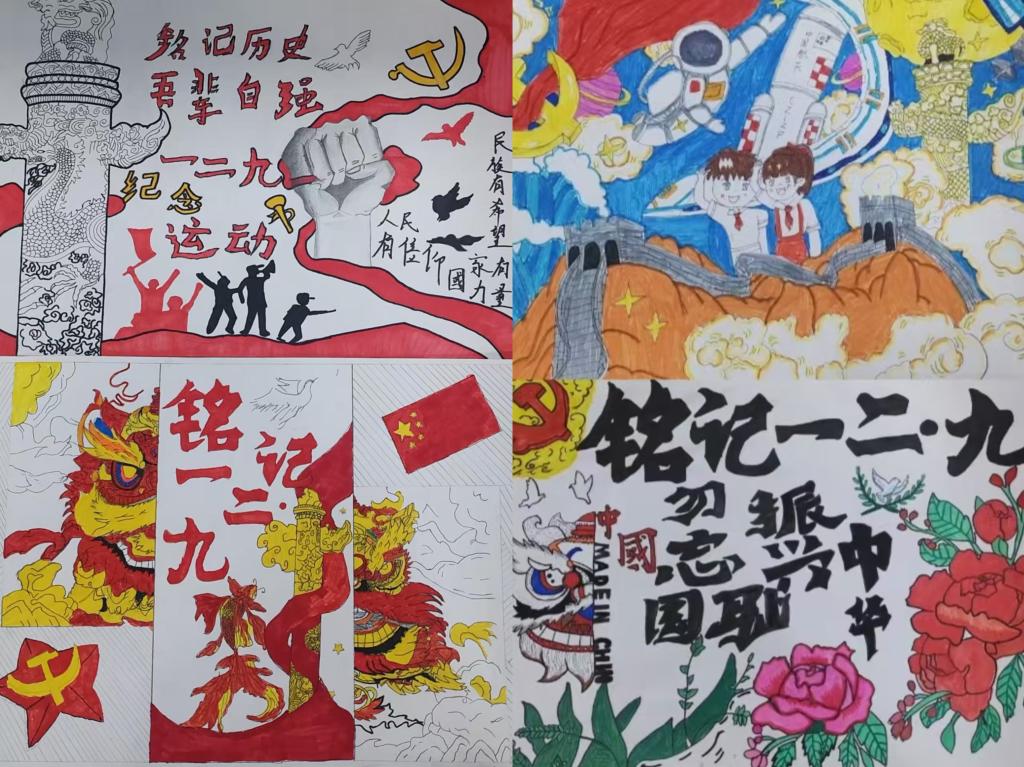 铭记历史
吾辈自强
纪念
一二九
运动
人民有信仰
民族有希望
國家有力量
中国航天
铭记
一二·九
铭记一二·九
勿忘国耻
振兴中华
中國
MADE IN CHINA